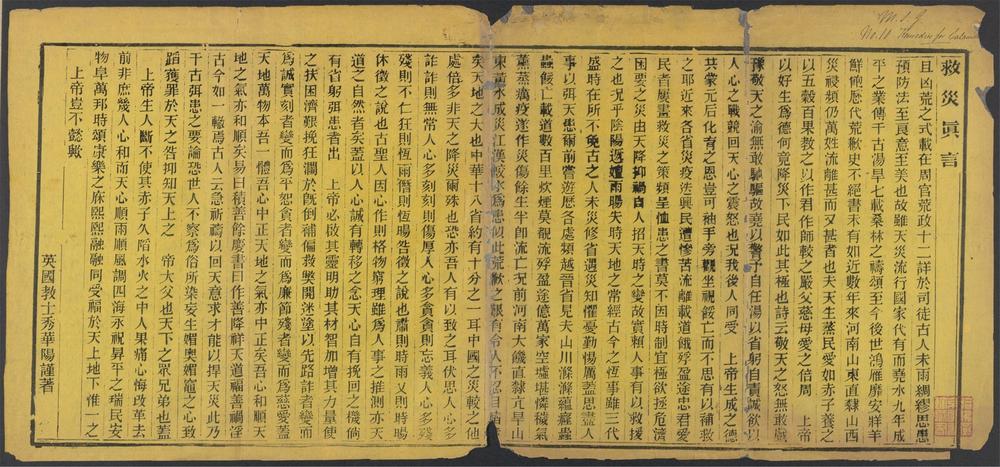 M. I. J.
No. 10
救災眞言
且因荒之式載在周官荒政十二詳於司徒古人未雨綢繆思患
預防法至良意至美也故雖天災流行國家代有而堯水九年成
平之業傳千古湯旱七載桑林之禱頌至今後世鴻雁靡安牂羊
鮮飽歷代荒歉史不絕書未有如近數年來河南山東直隸山西
災祲頻仍萬姓流離甚而又甚者也夫天生蒸民愛如赤子養之
以五穀百果教之以作君作師較之嚴父慈母愛之倍周　上帝
以好生爲德何竟降災下民如此其極也詩云敬天之怒無敢戲
豫敬天之渝無敢馳驅故堯以警予自任湯以省躬自責誠欲以
人心之戰兢回天心之震怒也況我後人同受　上帝生成之德
共蒙元后化育之恩豈可袖手旁觀坐視餒亡而不思有以補救
之耶近來各省災疫法興民遭慘苦流離載道餓殍盈途忠君愛
民者屢畫救災之策頻呈恤患之書莫不因時制宜極欲拯危濟
困要之災由天降抑禍自人招天時之變故實賴人事有以救援
之也況平陰陽遞嬗雨暘失時天地之常經古今之恆事雖三代
盛時在所不免古之人未災修省遇災知懼憂勤惕厲蓋思盡人
事以弭天患爾前嘗遊歷各處類越晉省見夫山川滌滌蘊蘊蟲
蟲餒亡載道數百里炊煙莫覩流殍盈途億萬家空墟堪憐穢氣
薰蒸癘疫遂作災傷餘生半卽流亡況前河南大饑直隸亢旱山
東黃水成災江漢
矣天地之大也中華十八省約有十分之一耳中國之災較之他
處倍多非天之降災爾殊也恐亦吾人有以致之耳伏思人心多
詐詐則無常人心多刻刻則傷厚人心多貪貪則忘義人心多殘
殘則不仁狂則恆雨僭則恆暘咎徵之說也肅則時雨乂則時暘
休徵之說也古聖人因心作則格物窮理雖爲人事之推測亦天
道之自然者矣蓋以人心誠有轉移之念天心自有挽回之機倘
有省躬弭患者出　上帝必啟其靈明助其材智加增其力量使
之扶困濟艱挽狂瀾於旣倒補偏救弊開迷塗以先路詐者變而
爲誠實刻者變而爲平恕貪者變而爲廉節殘者變而爲慈愛蓋
天地萬物本吾一體吾心中正天地之氣亦中正矣吾心和順天
地之氣亦和順矣易曰積善餘慶書曰作善降祥天道福善禍淫
古今如一轍焉古人云急祈禱以回天意求才能以捍天災此乃
千古弭患之要論恐世人不察爲俗所染妄生媚奧媚竈之心致
蹈獲罪於天之咎抑知天上之　帝大父也天下之眾兄弟也蓋
上帝生人斷不使其赤子久陷水火之中人果痛心悔改革去
前非庶幾人心和而天心順雨順風調四海永祝昇平之瑞民安
物阜萬邦時頌康樂之庥熙熙融融同受福於天上地下惟一之
上帝豈不懿歟
英國教士秀華陽謹著